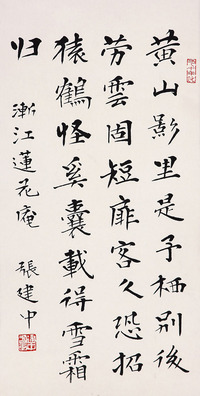 黄山影里是予栖别後
劳雲固短扉客久恐招
猿鶴怪奚囊載得雪霜
归
漸江蓮花庵
張建中